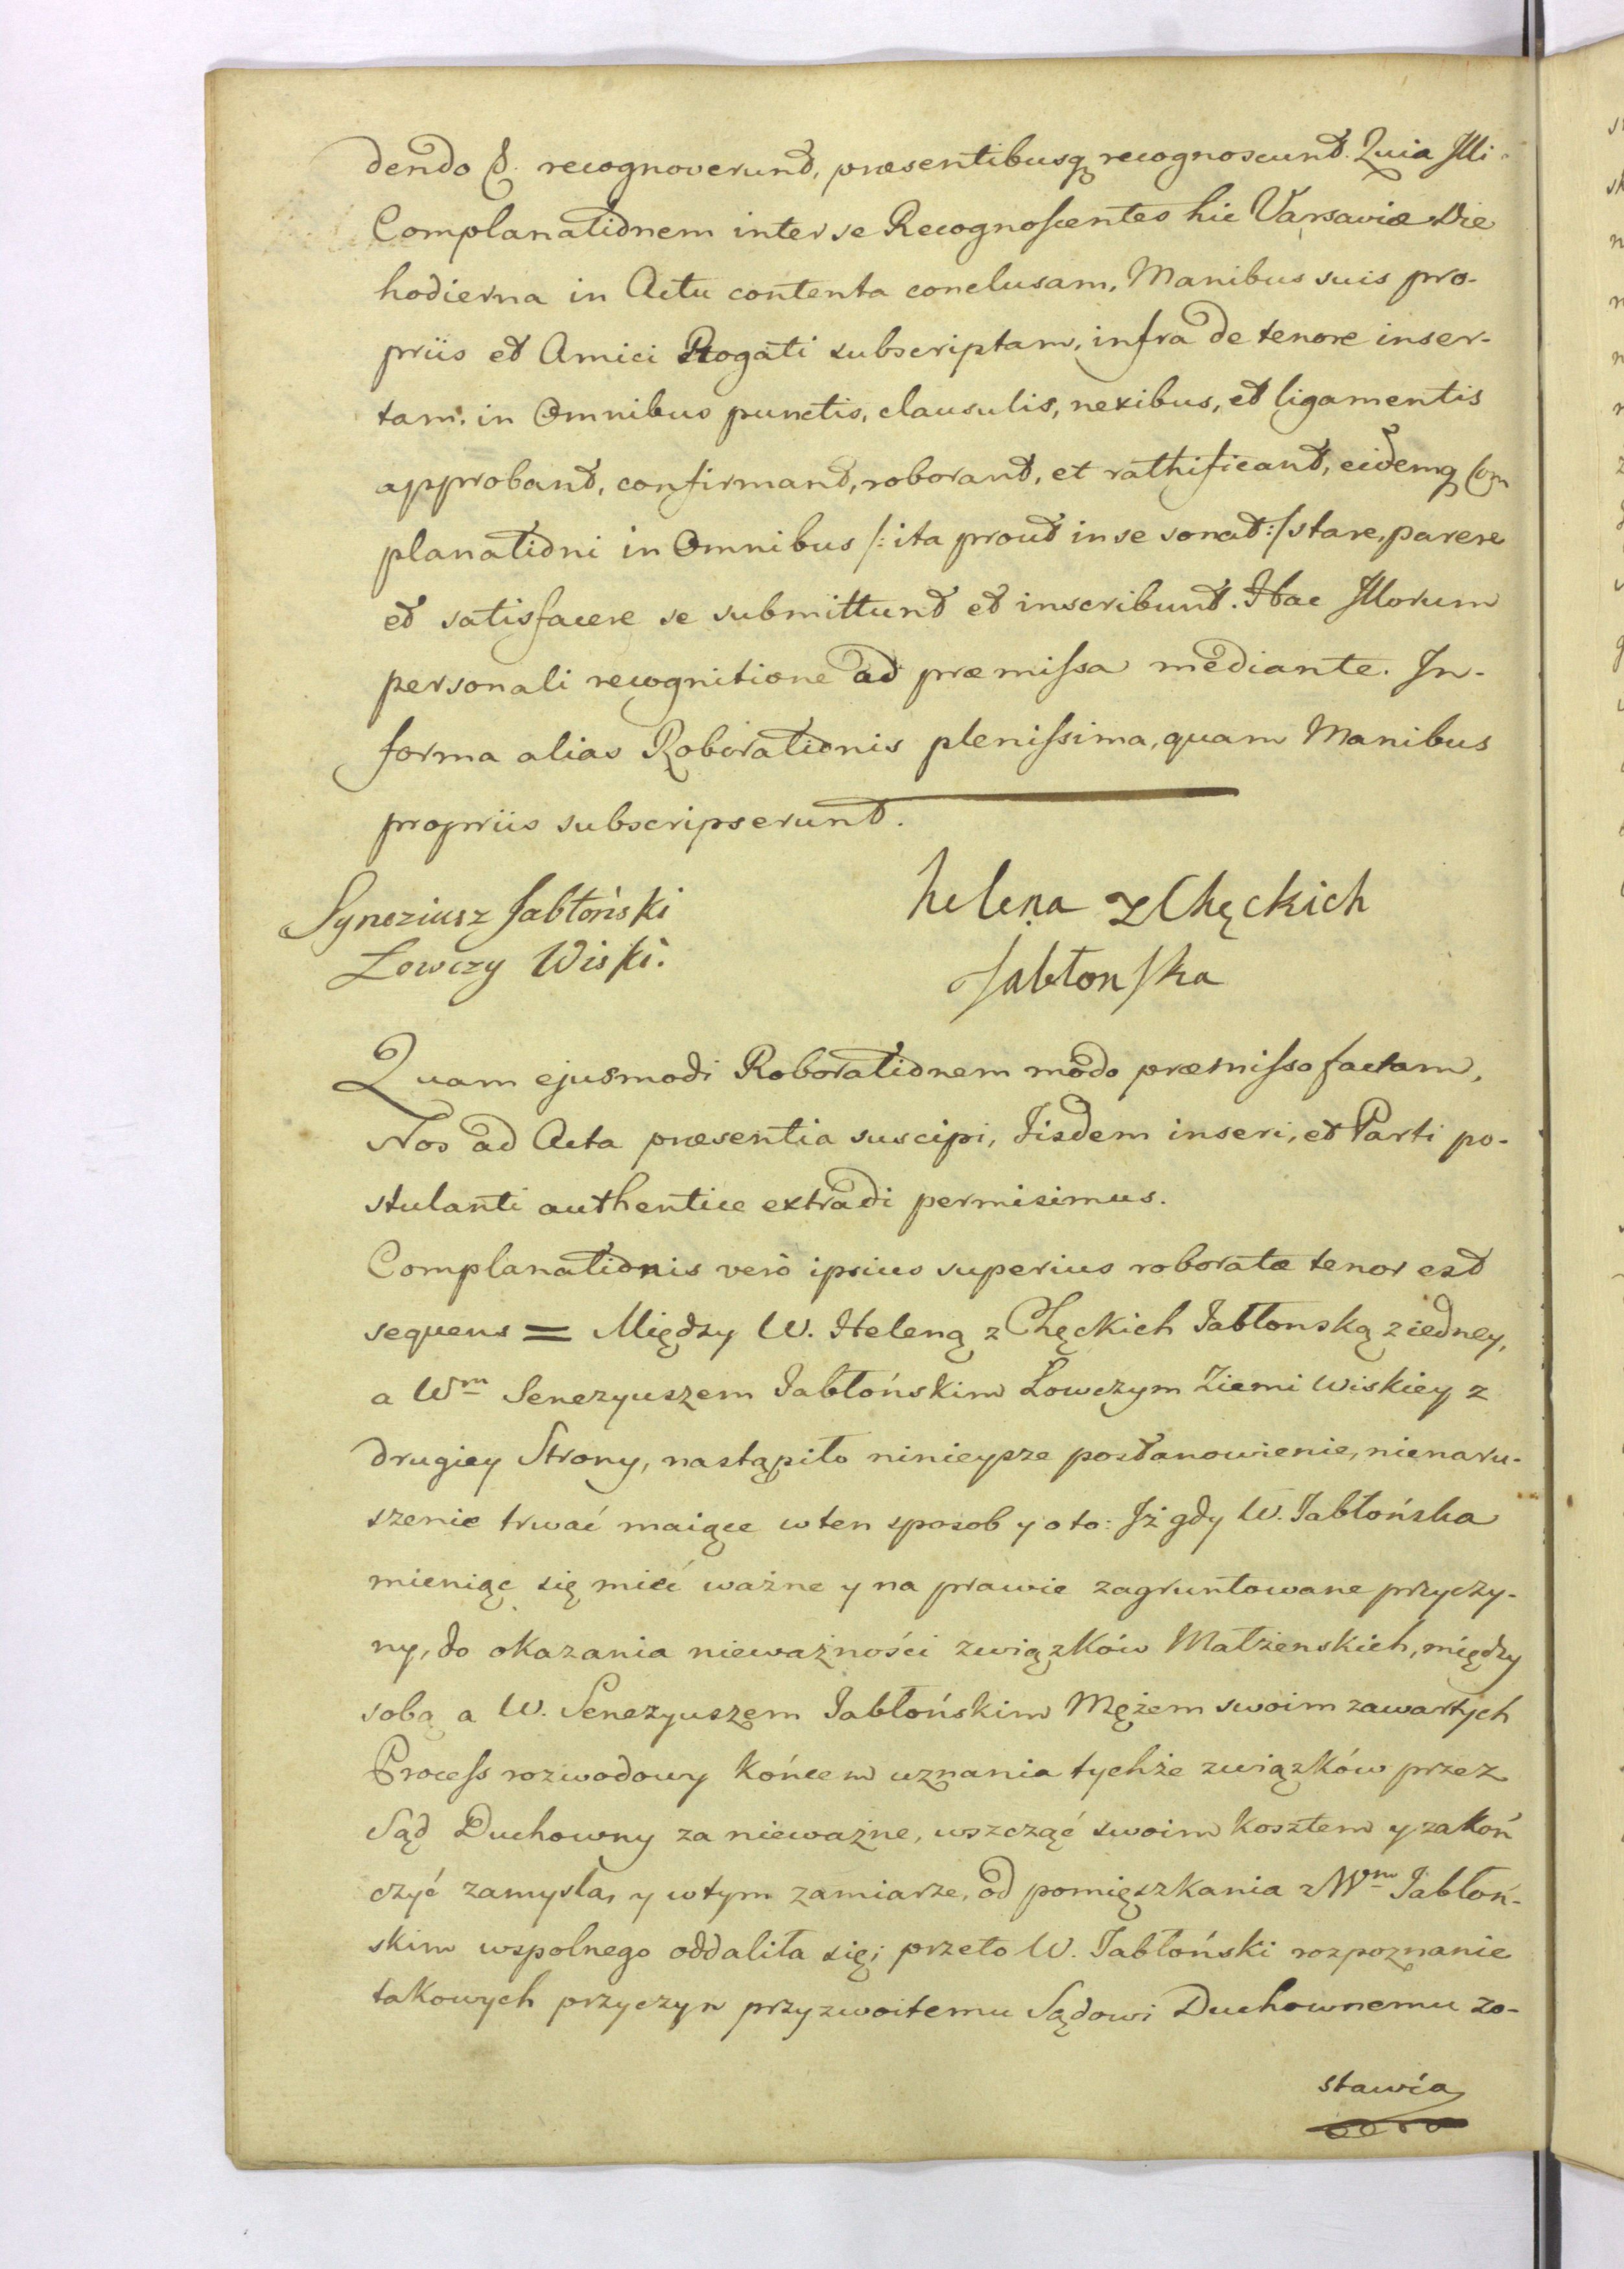 dendo &. recognoverunt, præsentibusq recognoscunt. Quia Illi
Complanationem inter se Recognoscentes hic Varsaviæ Die
hodierna in Actu contenta conclusam, Manibus suis pro-
priis et Amici Rogati subscriptam, infra de tenore inser-
tam, in Omnibus punctis, clausulis, nexibus, et ligamentis
approbant, confirmant, roborant, et rathificant, eidemq Com
planationi in Omnibus /: ita prout in se sonat :/ stare, parere
et satisfacere se submittunt et inscribunt. Hac Illorum
personali recognitione ad præmissa mediante. In-
forma alias Roborationis plenissima, quam Manibus
propriis subscripserunt.
Syneziusz Jabłoński
Łowczy Wiski.
helena z Chęckich
Jabłonska
Quam ejusmodi Roborationem modo præmisso factam,
Nos ad Acta præsentia suscipi, Iisdem inseri, et Parti po-
stulanti authentice extradi permisimus.
Complanationis verò ipsius superius roboratæ tenor est
sequens = Między W. Heleną z Chęckich Jabłonską z iedney,
a Wm Senezyuszem Jabłońskim Łowczym Ziemi Wiskiey z
drugiey Strony, nastąpiło ninieysze postanowienie, nienaru-
szenie trwać maiące w ten sposob y o to: Iż gdy W. Jabłońska
mieniąc się mieć ważne y na prawie zagruntowane przyczy-
ny, do okazania nieważności związków Małżenskich, między
sobą a W. Senezyuszem Jabłońskim Mężem swoim zawartych
Process rozwodowy końcem uznania tychże związków przez
Sąd Duchowny za nieważne, wszcząć swoim kosztem y zakoń
czyć zamyśla, y w tym zamiarze, od pomięszkania z Wm Jabłoń-
skim wspolnego oddaliła się; przeto W. Jabłoński rozpoznanie
takowych przyczyn przyzwoitemu Sądowi Duchownemu zo-
stawia